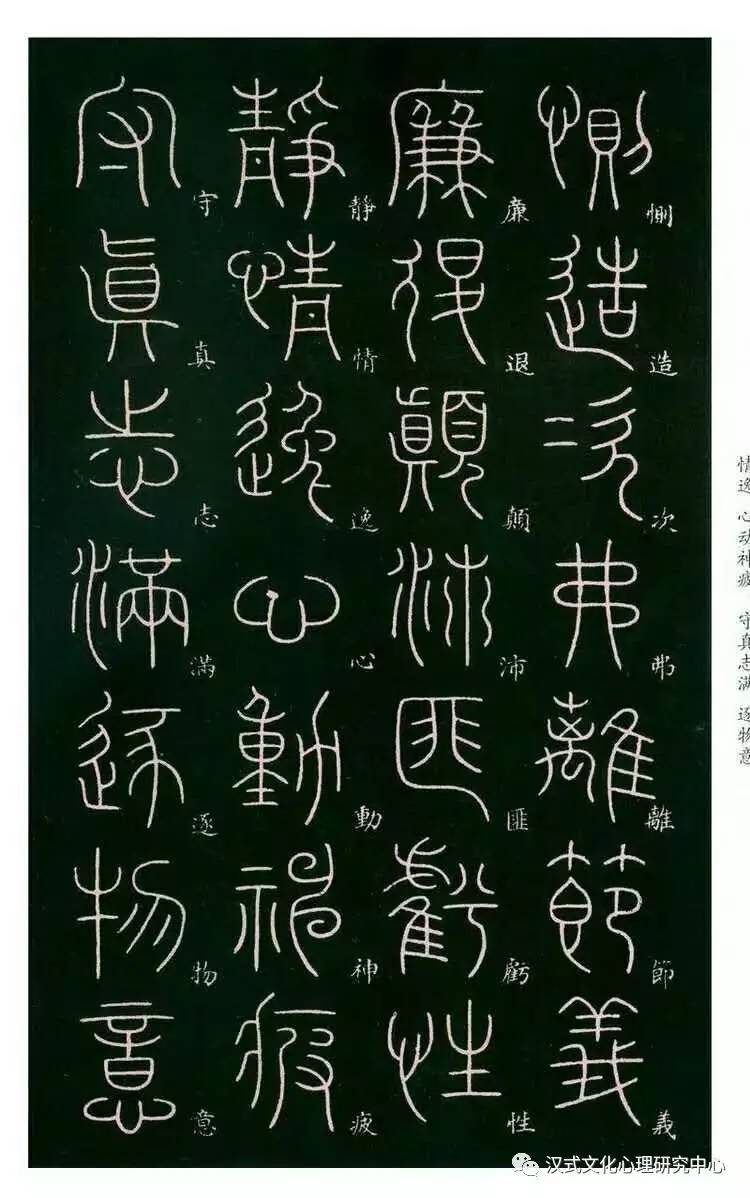 情逸 心动神疲 守真志满 逐物意
惻造次弗離節義
惻造次弗離節義
廉退顛沛匪虧性
廉退顛沛匪虧性
靜情逸心動神疲
靜情逸心動神疲
守眞志滿逐物意
守真志滿逐物意
汉式文化心理研究中心